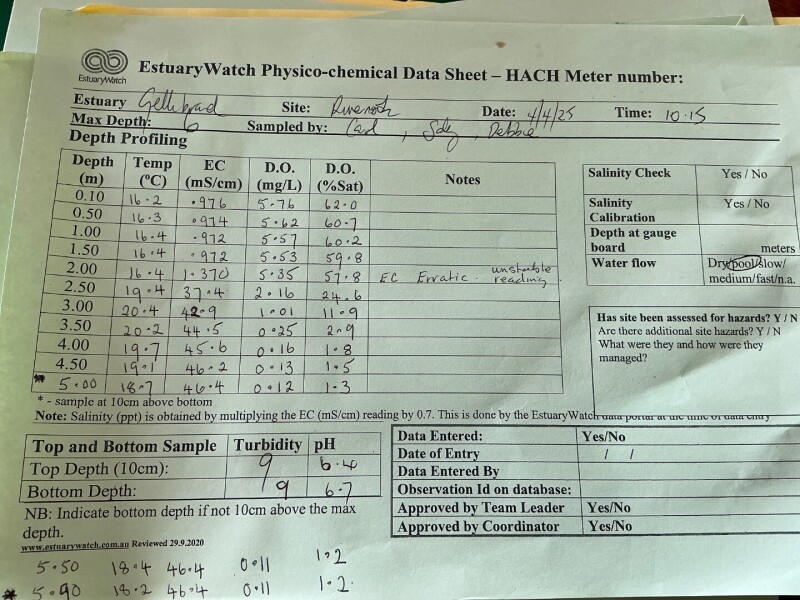 EstuaryWatch
EstuaryWatch Physico-chemical Data Sheet – HACH Meter number:
Estuary Gellibrand Site: Rivermouth Date: 4/4/25 Time: 10.15
Max Depth: 6 Sampled by: Carl, Sally, Debbie
Depth Profiling
Depth (m) Temp (ºC) EC (mS/cm) D.O. (mg/L) D.O. (%Sat) Notes
0.10 16.2 .976 5.76 62.0
0.50 16.3 .974 5.62 60.7
1.00 16.4 .972 5.57 60.2
1.50 16.4 .972 5.53 59.8
2.00 16.4 1.370 5.35 57.8 EC Erratic. unstable reading.
2.50 19.4 37.4 2.16 24.6
3.00 20.4 42.9 1.01 11.9
3.50 20.2 44.5 0.25 2.9
4.00 19.7 45.6 0.16 1.8
4.50 19.1 46.2 0.13 1.5
* 5.00 18.7 46.4 0.12 1.3
* - sample at 10cm above bottom
Note: Salinity (ppt) is obtained by multiplying the EC (mS/cm) reading by 0.7. This is done by the EstuaryWatch data portal at the time of data entry
Salinity Check Yes / No
Salinity Calibration Yes / No
Depth at gauge board meters
Water flow Dry/pool/slow/
medium/fast/n.a.
Has site been assessed for hazards? Y / N
Are there additional site hazards? Y / N
What were they and how were they
managed?
Top and Bottom Sample Turbidity pH
Top Depth (10cm): 9 6.40
Bottom Depth: 9 6.7
NB: Indicate bottom depth if not 10cm above the max
depth.
www.estuarywatch.com.au Reviewed 29.9.2020
Data Entered: Yes/No
Date of Entry / /
Data Entered By
Observation Id on database:
Approved by Team Leader Yes/No
Approved by Coordinator Yes/No
5.50 18.4 46.4 0.11 1.2
* 5.90 18.2 46.4 0.11 1.2.